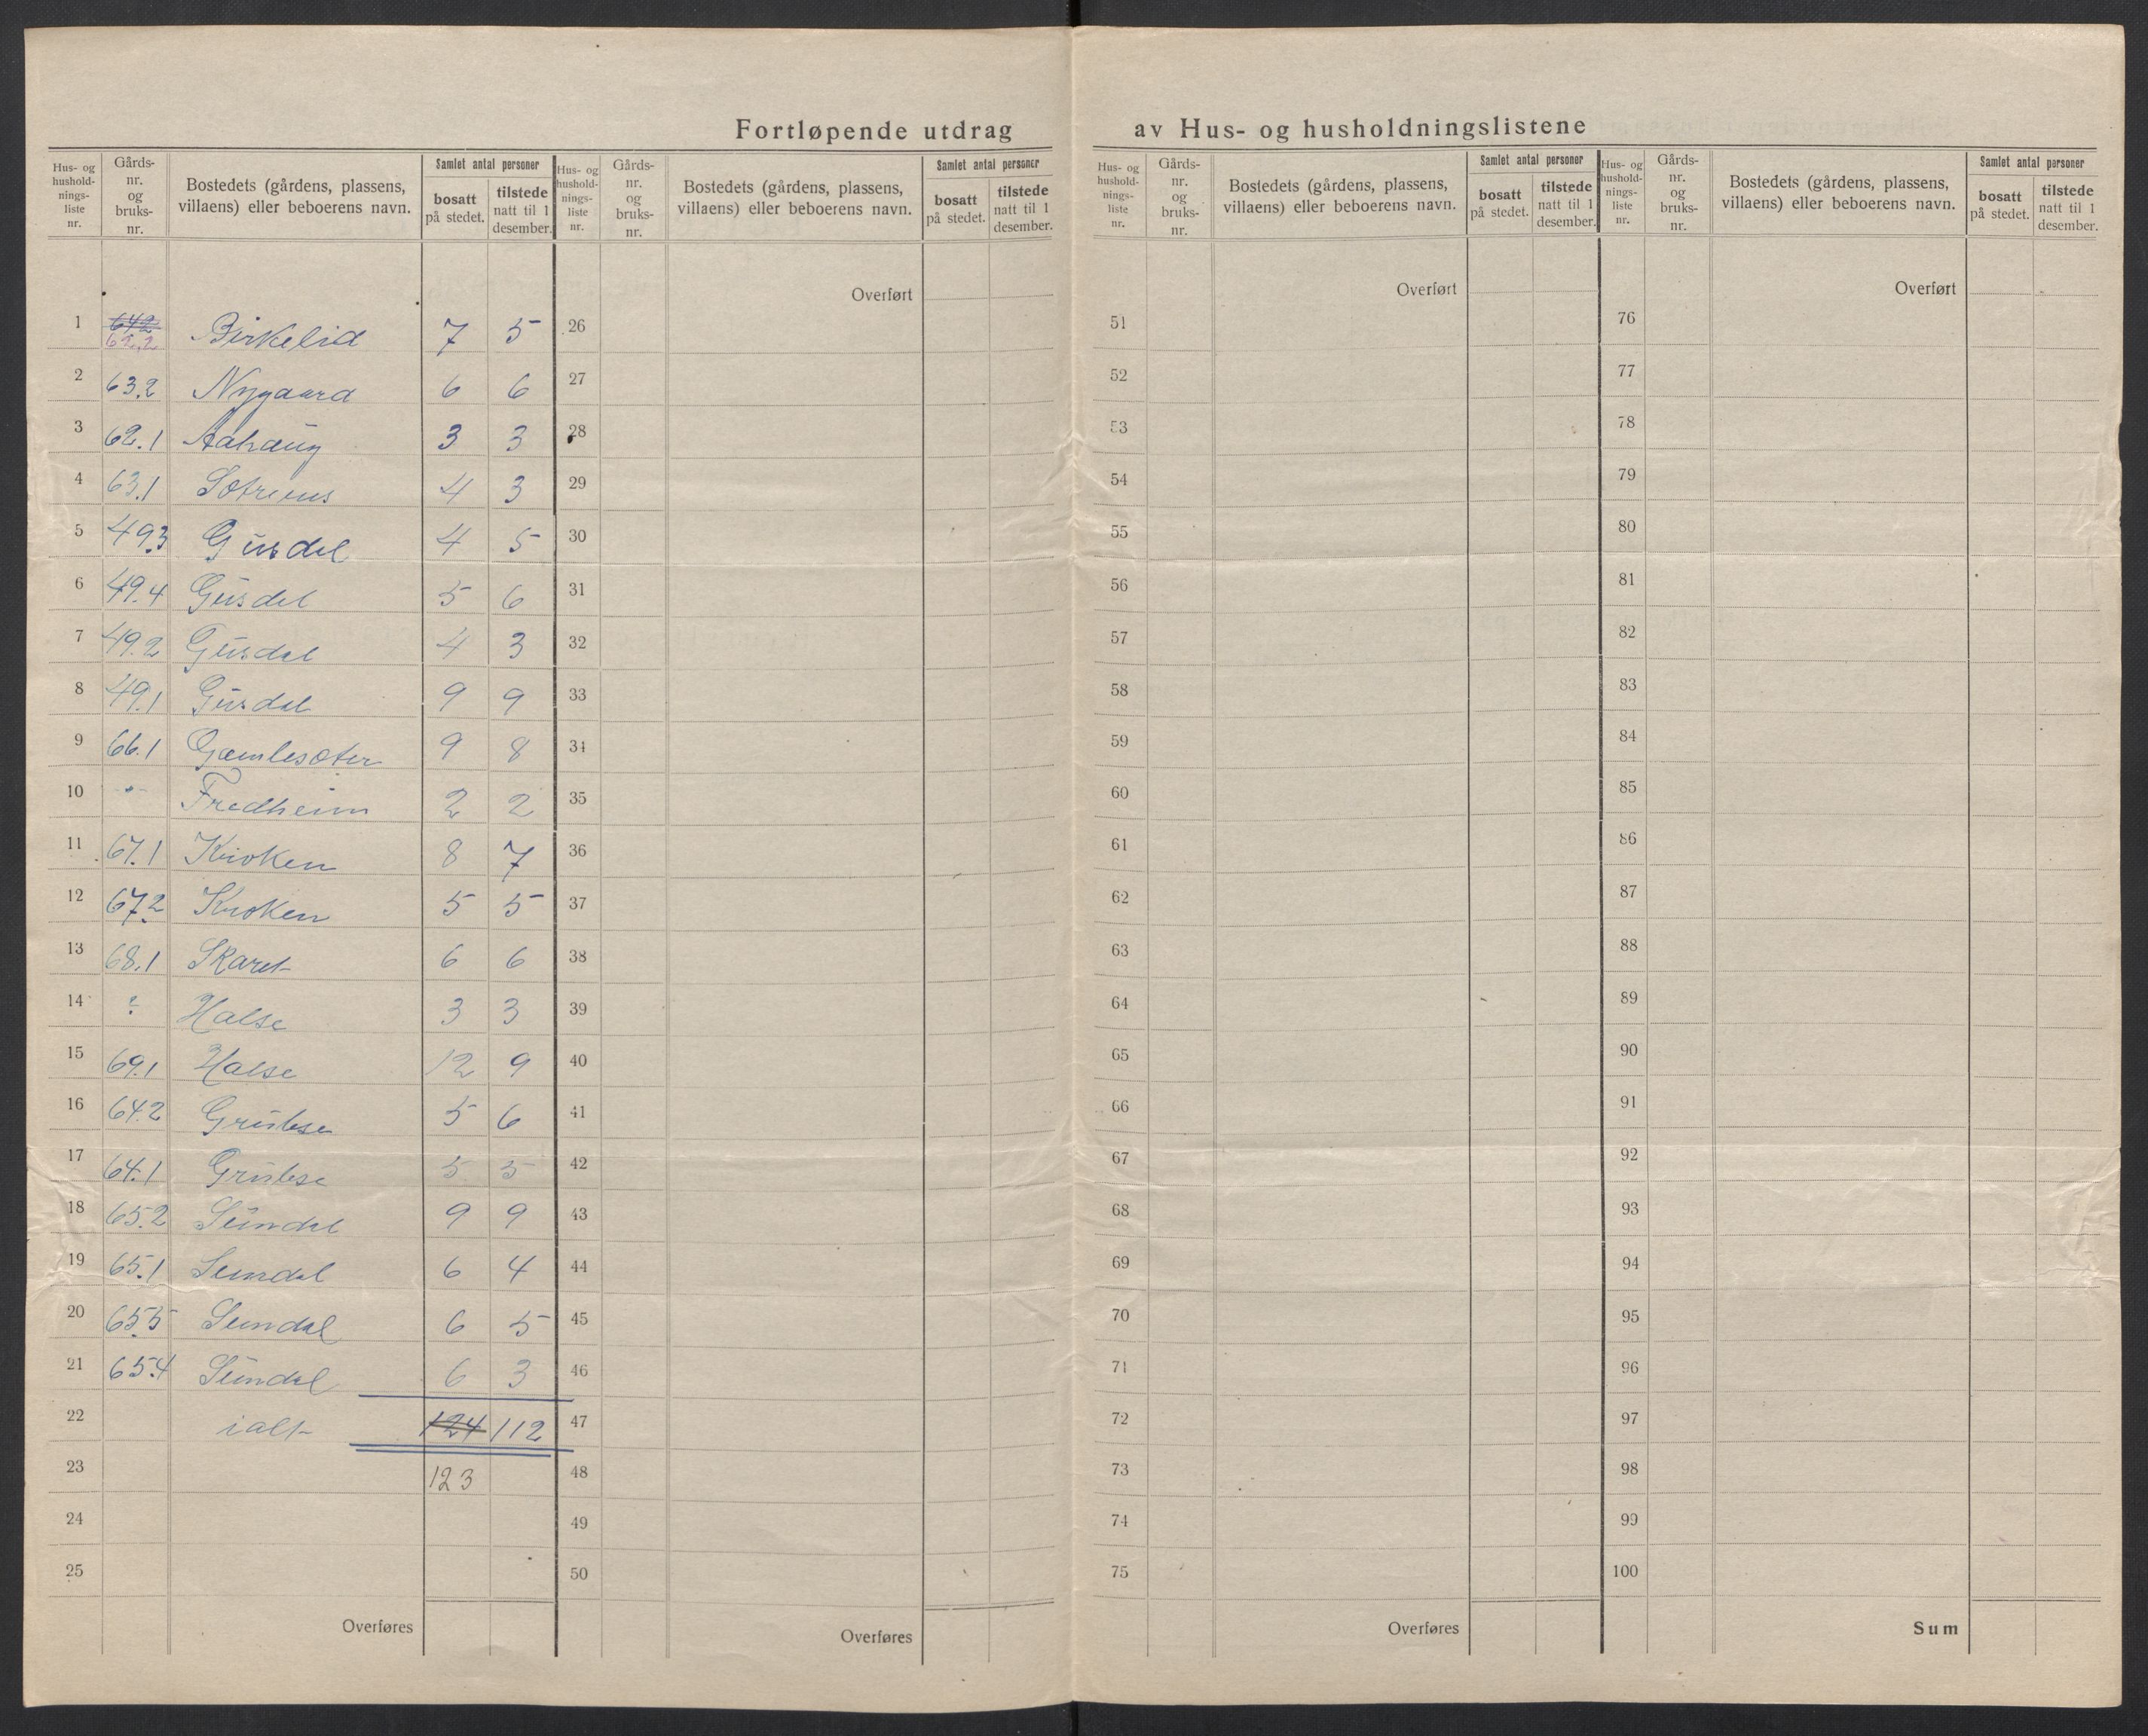 Fortløpende utdrag av Hus- og husholdningslistene
Hus- og hushold-nings-liste nr. Gårds-nr. og bruks-nr. Bostedets (gårdens, plassens, villaens) eller beboerens navn. Samlet antal personer bosatt på stedet. tilstede natt til 1 desember.
Hus- og hushold-nings-liste nr. Gårds-nr. og bruks-nr. Bostedets (gårdens, plassens, villaens) eller beboerens navn. Samlet antal personer bosatt på stedet. tilstede natt til 1 desember.
Hus- og hushold-nings-liste nr. Gårds-nr. og bruks-nr. Bostedets (gårdens, plassens, villaens) eller beboerens navn. Samlet antal personer bosatt på stedet. tilstede natt til 1 desember.
Hus- og hushold-nings-liste nr. Gårds-nr. og bruks-nr. Bostedets (gårdens, plassens, villaens) eller beboerens navn. Samlet antal personer bosatt på stedet. tilstede natt til 1 desember.
Overført Overført Overført
1 642 62.2 Birkelid 7 5 26 51 76
2 63.2 Nygaard 6 6 27 52 77
3 62.1 Aahaug 3 3 28 53 78
4 63.1 4 3 29 54 79
5 49.3 Gusdal 4 5 30 55 80
6 49.4 Gusdal 5 6 31 56 81
7 49.2 Gusdal 4 3 32 57 82
8 49.1 Gusdal 9 9 33 58 83
9 66.1 Gamlesæter 9 8 34 59 84
10 -"- Fredheim 2 2 35 60 85
11 67.1 Kroken 8 7 36 61 86
12 67.2 Kroken 5 5 37 62 87
13 68.1 Skaret 6 6 38 63 88
14 ? Halse 3 3 39 64 89
15 69.1 Halse 12 9 40 65 90
16 64.2 Grubse 5 6 41 66 91
17 64.1 Grubse 5 5 42 67 92
18 65.2 Sundal 9 9 43 68 93
19 65.1 Sundal 6 4 44 69 94
20 65.5 Sundal 6 5 45 70 95
21 65.4 Sundal 6 3 46 71 96
22 ialt 124 112 47 72 97
23 123 48 73 98
24 49 74 99
25 50 75 100
Overføres Overføres Overføres Sum